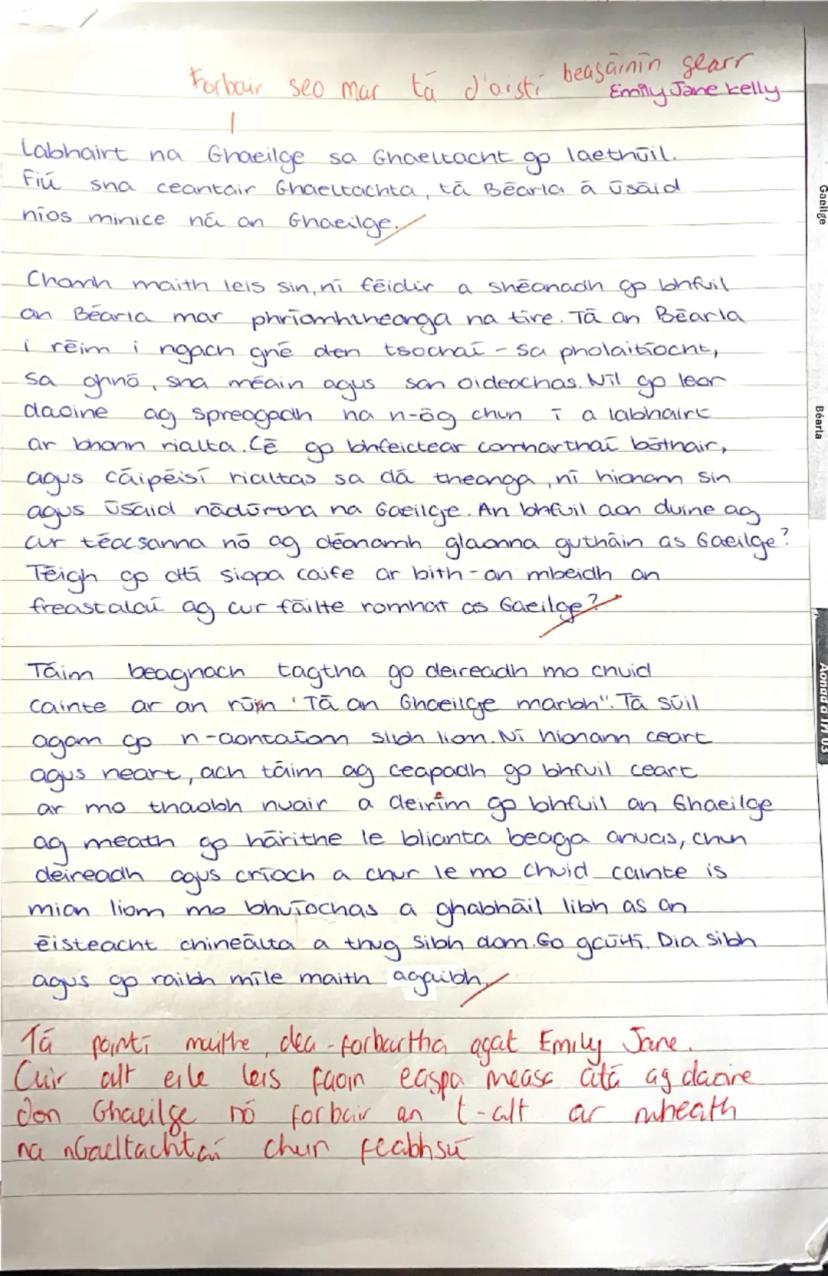 Forbair seo mar tá d'aistí beagáinín gearr
Emily Jane Kelly
Labhairt na Ghaeilge sa Ghaeltacht go laethúil.
Fiú sna ceantair Ghaeltachta, tá Béarla á úsáid
níos minice ná an Ghaeilge.
Chomh maith leis sin, ní féidir a shéanadh go bhfuil
an Béarla mar phríomhtheanga na tíre. Tá an Béarla
i réim i ngach gné den tsochaí - sa pholaitíocht,
sa ghnó, sna méain agus san oideachas. Níl go leor
daoine ag spreagadh na n-óg chun í a labhairt
ar bhonn rialta. Cé go bhfeictear comharthaí bóthair,
agus cáipéisí rialtas sa dá theanga, ní hionam sin
agus úsáid nádúrtha na Gaeilge. An bhfuil aon duine ag
cur téacsanna nó ag déanamh glaonna gutháin as Gaeilge?
Téigh go dtí siopa caife ar bith - an mbeidh an
freastalaí ag cur fáilte romhat as Gaeilge?
Táim beagnach tagtha go deireadh mo chuid
cainte ar an rún 'Tá an Ghaeilge marbh". Tá súil
agam go n-aontaíom sibh liom. Ní hionann ceart
agus neart, ach táim ag ceapadh go bhfuil ceart
ar mo thaobh nuair a deirim go bhfuil an Ghaeilge
ag meath go háirithe le blianta beaga anuas, chun
deireadh agus críoch a chur le mo chuid cainte is
mian liom mo bhuíochas a ghabháil libh as an
éisteacht chineálta a thug sibh dom. Go gcúití Dia sibh
agus go raibh míle maith agaibh.
Tá pointí maithe, dea-forbartha agat Emily Jane.
Cuir alt eile leis faoin easpa measc atá ag daoine
don Ghaeilge nó forbair an t-alt ar mheath
na nGaeltachtaí chun feabhsú
Gaeilge
Béarla